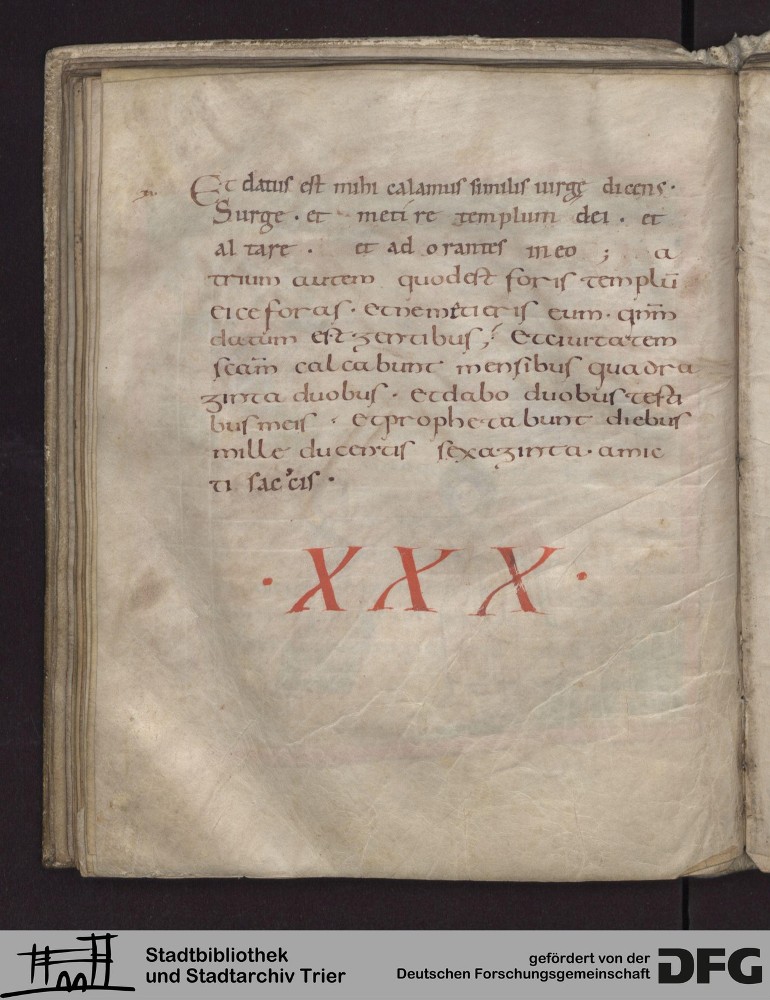 Et datus est mihi calamus similis uirgę dicens·
Surge · et metire templum dei · et
altare · et adorantes in eo ; a
trium autem quodest foris templū
eice foras · et ne metiaris eum · qnm̄
datum est gentibus ; Et ciuitatem
scam̄ calcabunt mensibus quadra
ginta duobus · Et dabo duobus testi
bus meis · Et prophetabunt diebus
mille ducentis sexaginta · amic
ti saccis ·
· XXX ·
Stadtbibliothek
und Stadtarchiv Trier
gefördert von der
Deutschen Forschungsgemeinschaft
DFG